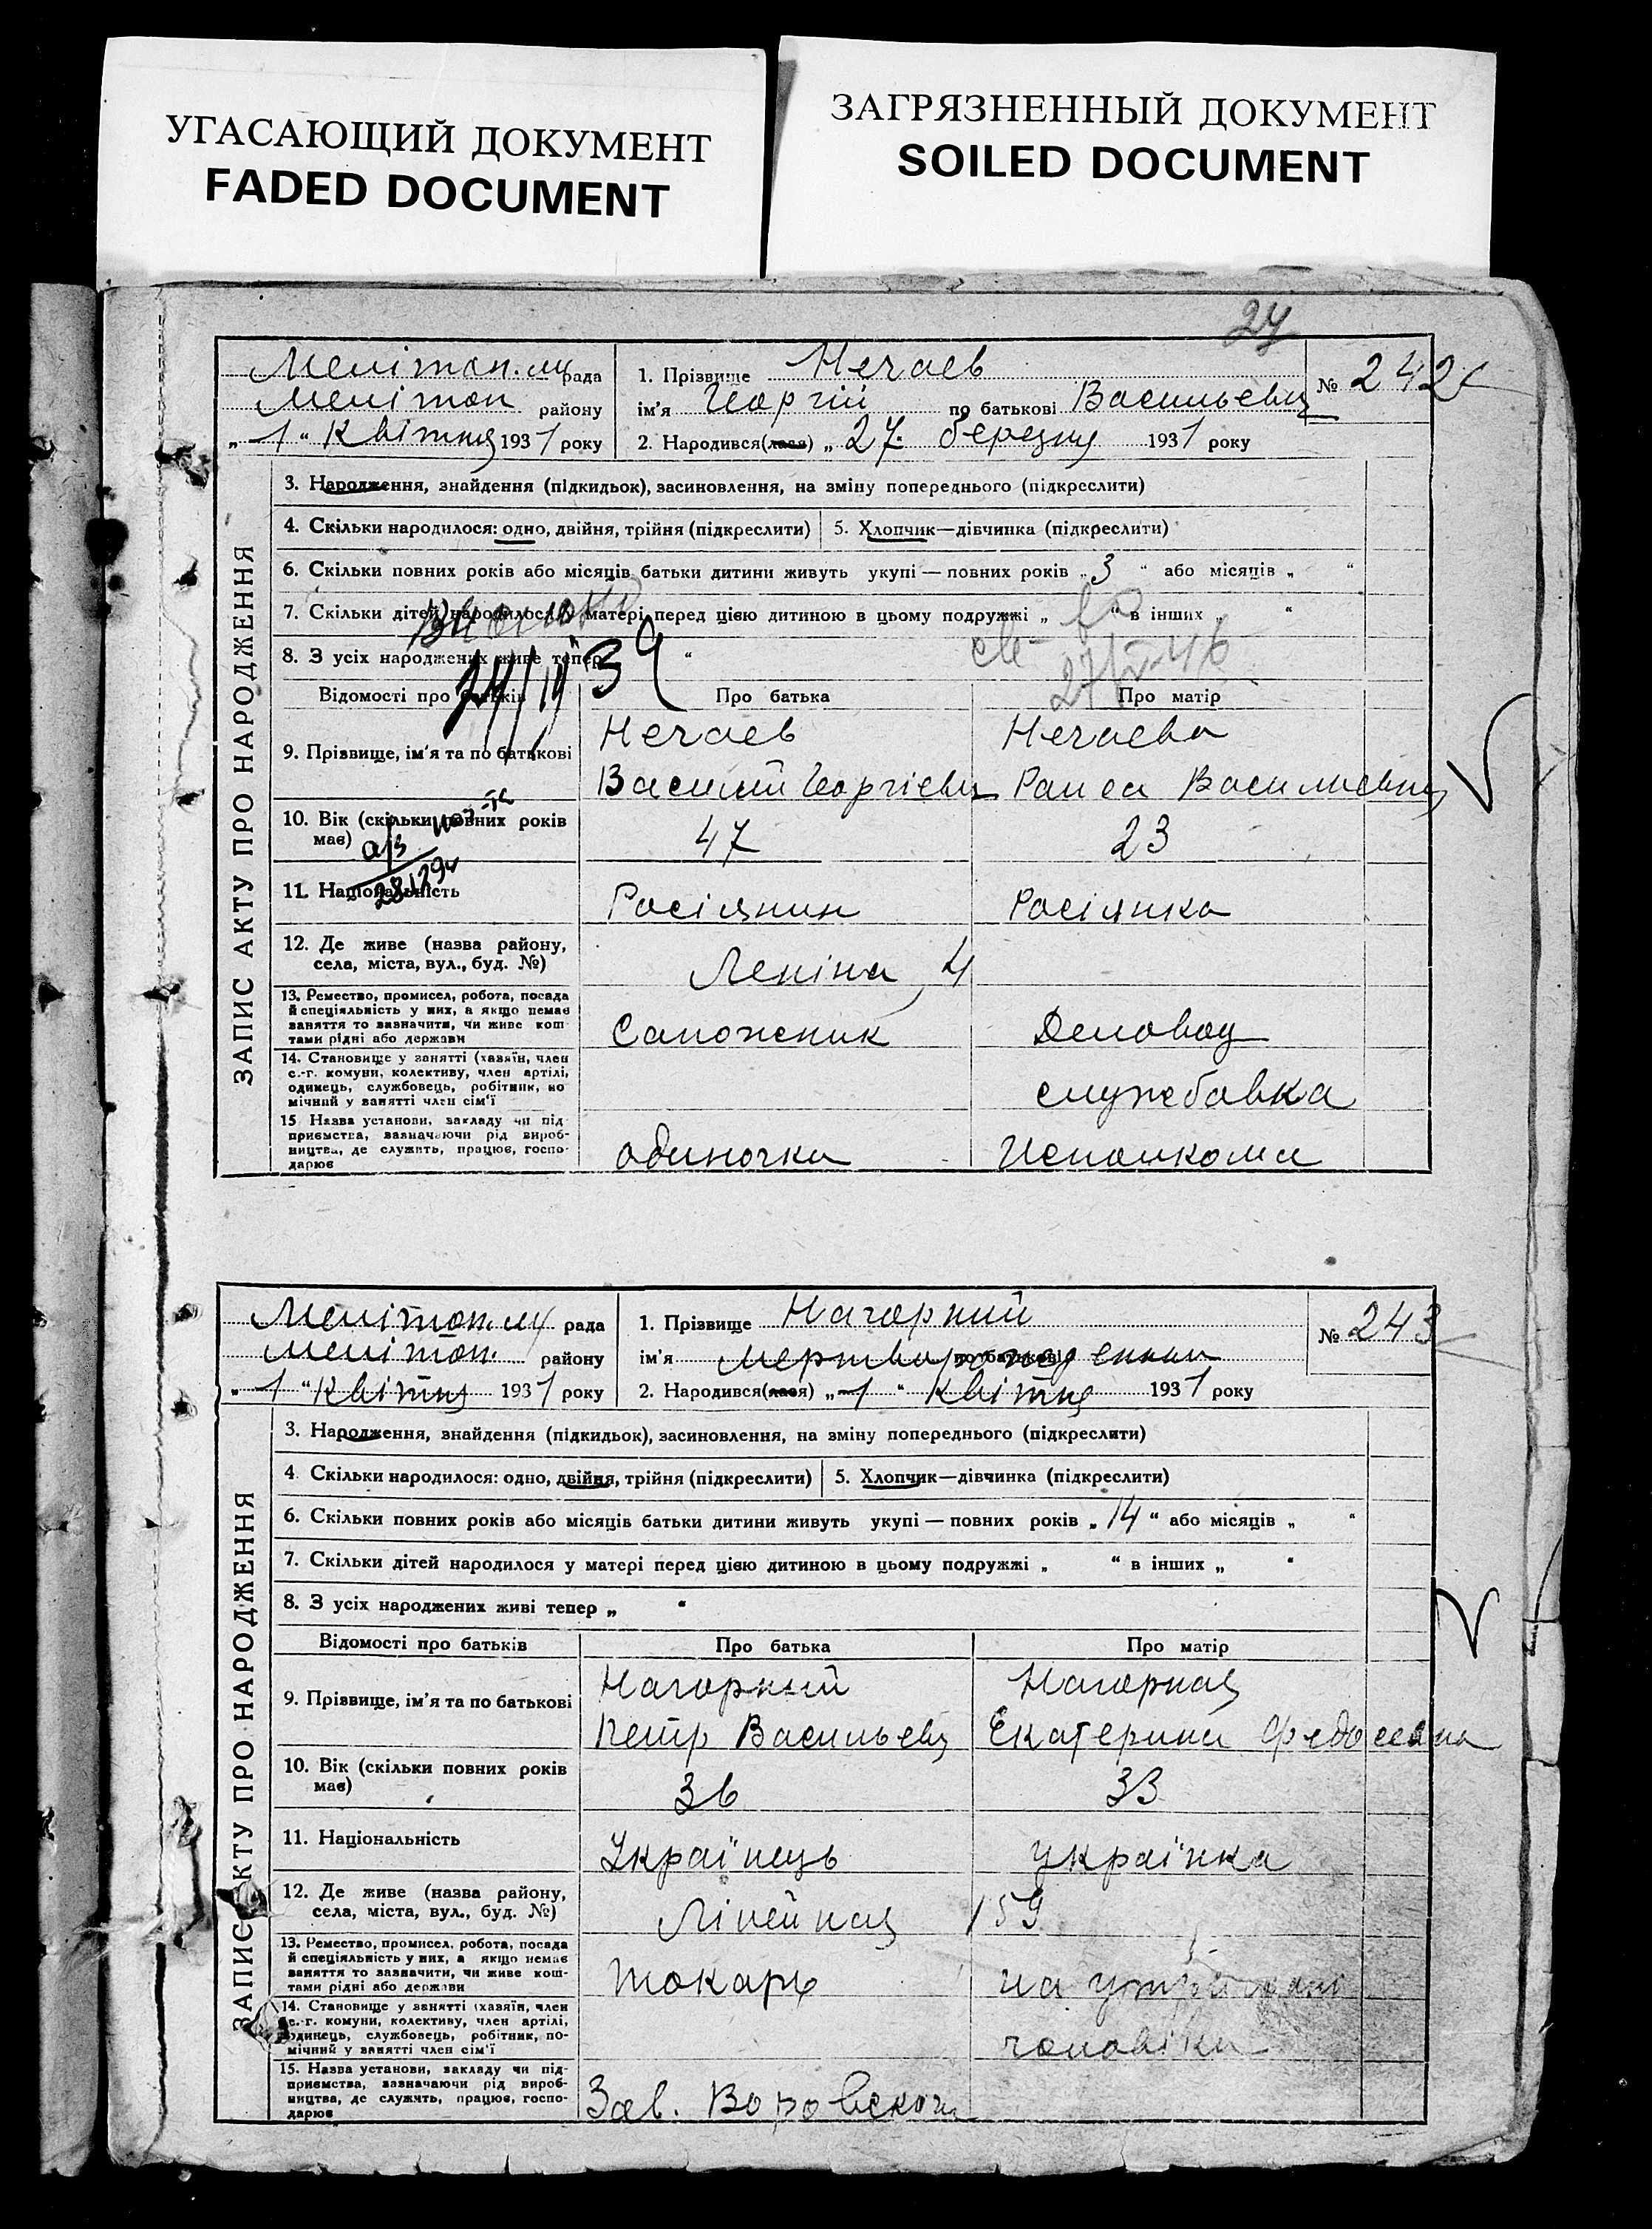 УГАСАЮЩИЙ ДОКУМЕНТ
FADED DOCUMENT
ЗАГРЯЗНЕННЫЙ ДОКУМЕНТ
SOILED DOCUMENT
ЗАПИС АКТУ ПРО НАРОДЖЕННЯ
Мелітоп. рада
Мелітоп району
„1“ Квітня 1931 року
1. Прізвище Нечаев
ім'я Георгій по батькові Васильевич
2. Народився(лася) „27. березня 1931 року
№ 242
3. Народження, знайдення (підкидьок), засиновлення, на зміну попереднього (підкреслити)
4. Скільки народилося: одно, двійня, трійня (підкреслити) 5. Хлопчик—дівчинка (підкреслити)
6. Скільки повних років або місяців батьки дитини живуть укупі — повних років „3“ або місяців „ “
7. Скільки дітей народилося у матері перед цією дитиною в цьому подружжі „ “ в інших „ “
8. З усіх народжених живе тепер „ “
Відомості про батьків Про батька Про матір
9. Прізвище, ім'я та по батькові
Нечаев Нечаева
Василий Георгіевич Раиса Василиевна
10. Вік (скільки повних років
має) 47 23
11. Національність Росіянин Росіянка
12. Де живе (назва району,
села, міста, вул., буд. №) Леніна, 4
13. Ремество, промисел, робота, посада
й спеціяльність у них, а якщо немає
заняття то зазначити, чи живе кош-
тами рідні або держави
Сапожник Деловод
14. Становище у занятті (хазяїн, член
с.-г. комуни, колективу, член артілі,
одинець, службовець, робітник, по
мічний у занятті член сім'ї
службовка
15 Назва установи, закладу чи під-
приємства, зазначаючи рід вироб-
ництва, де служить, працює, госпо-
дарює
одиночка Исполкома
ЗАПИС АКТУ ПРО НАРОДЖЕННЯ
Мелітоп. рада
Мелітоп. району
„1“ Квітня 1931 року
1. Прізвище Нагорний
ім'я мертворожденний по батькові
2. Народився(лася) „1“ Квітня 1931 року
№ 243
3. Народження, знайдення (підкидьок), засиновлення, на зміну попереднього (підкреслити)
4. Скільки народилося: одно, двійня, трійня (підкреслити) 5. Хлопчик—дівчинка (підкреслити)
6. Скільки повних років або місяців батьки дитини живуть укупі — повних років „14“ або місяців „ “
7. Скільки дітей народилося у матері перед цією дитиною в цьому подружжі „ “ в інших „ “
8. З усіх народжених живі тепер „ “
Відомості про батьків Про батька Про матір
9. Прізвище, ім'я та по батькові
Нагорний Нагорная
Петр Васильевич Екатерина Федосеевна
10. Вік (скільки повних років
має) 36 33
11. Національність Українець українка
12. Де живе (назва району,
села, міста, вул., буд. №) Лінейная 159
13. Ремество, промисел, робота, посада
й спеціяльність у них, а якщо немає
заняття то зазначити, чи живе кош-
тами рідні або держави
токарь на утриманні
14. Становище у занятті (хазяїн, член
с.-г. комуни, колективу, член артілі,
одинець, службовець, робітник, по-
мічний у занятті член сім'ї
чоловіка
15. Назва установи, закладу чи під-
приємства, зазначаючи рід вироб-
ництва, де служить, працює, госпо-
дарює
Зав. Воровского